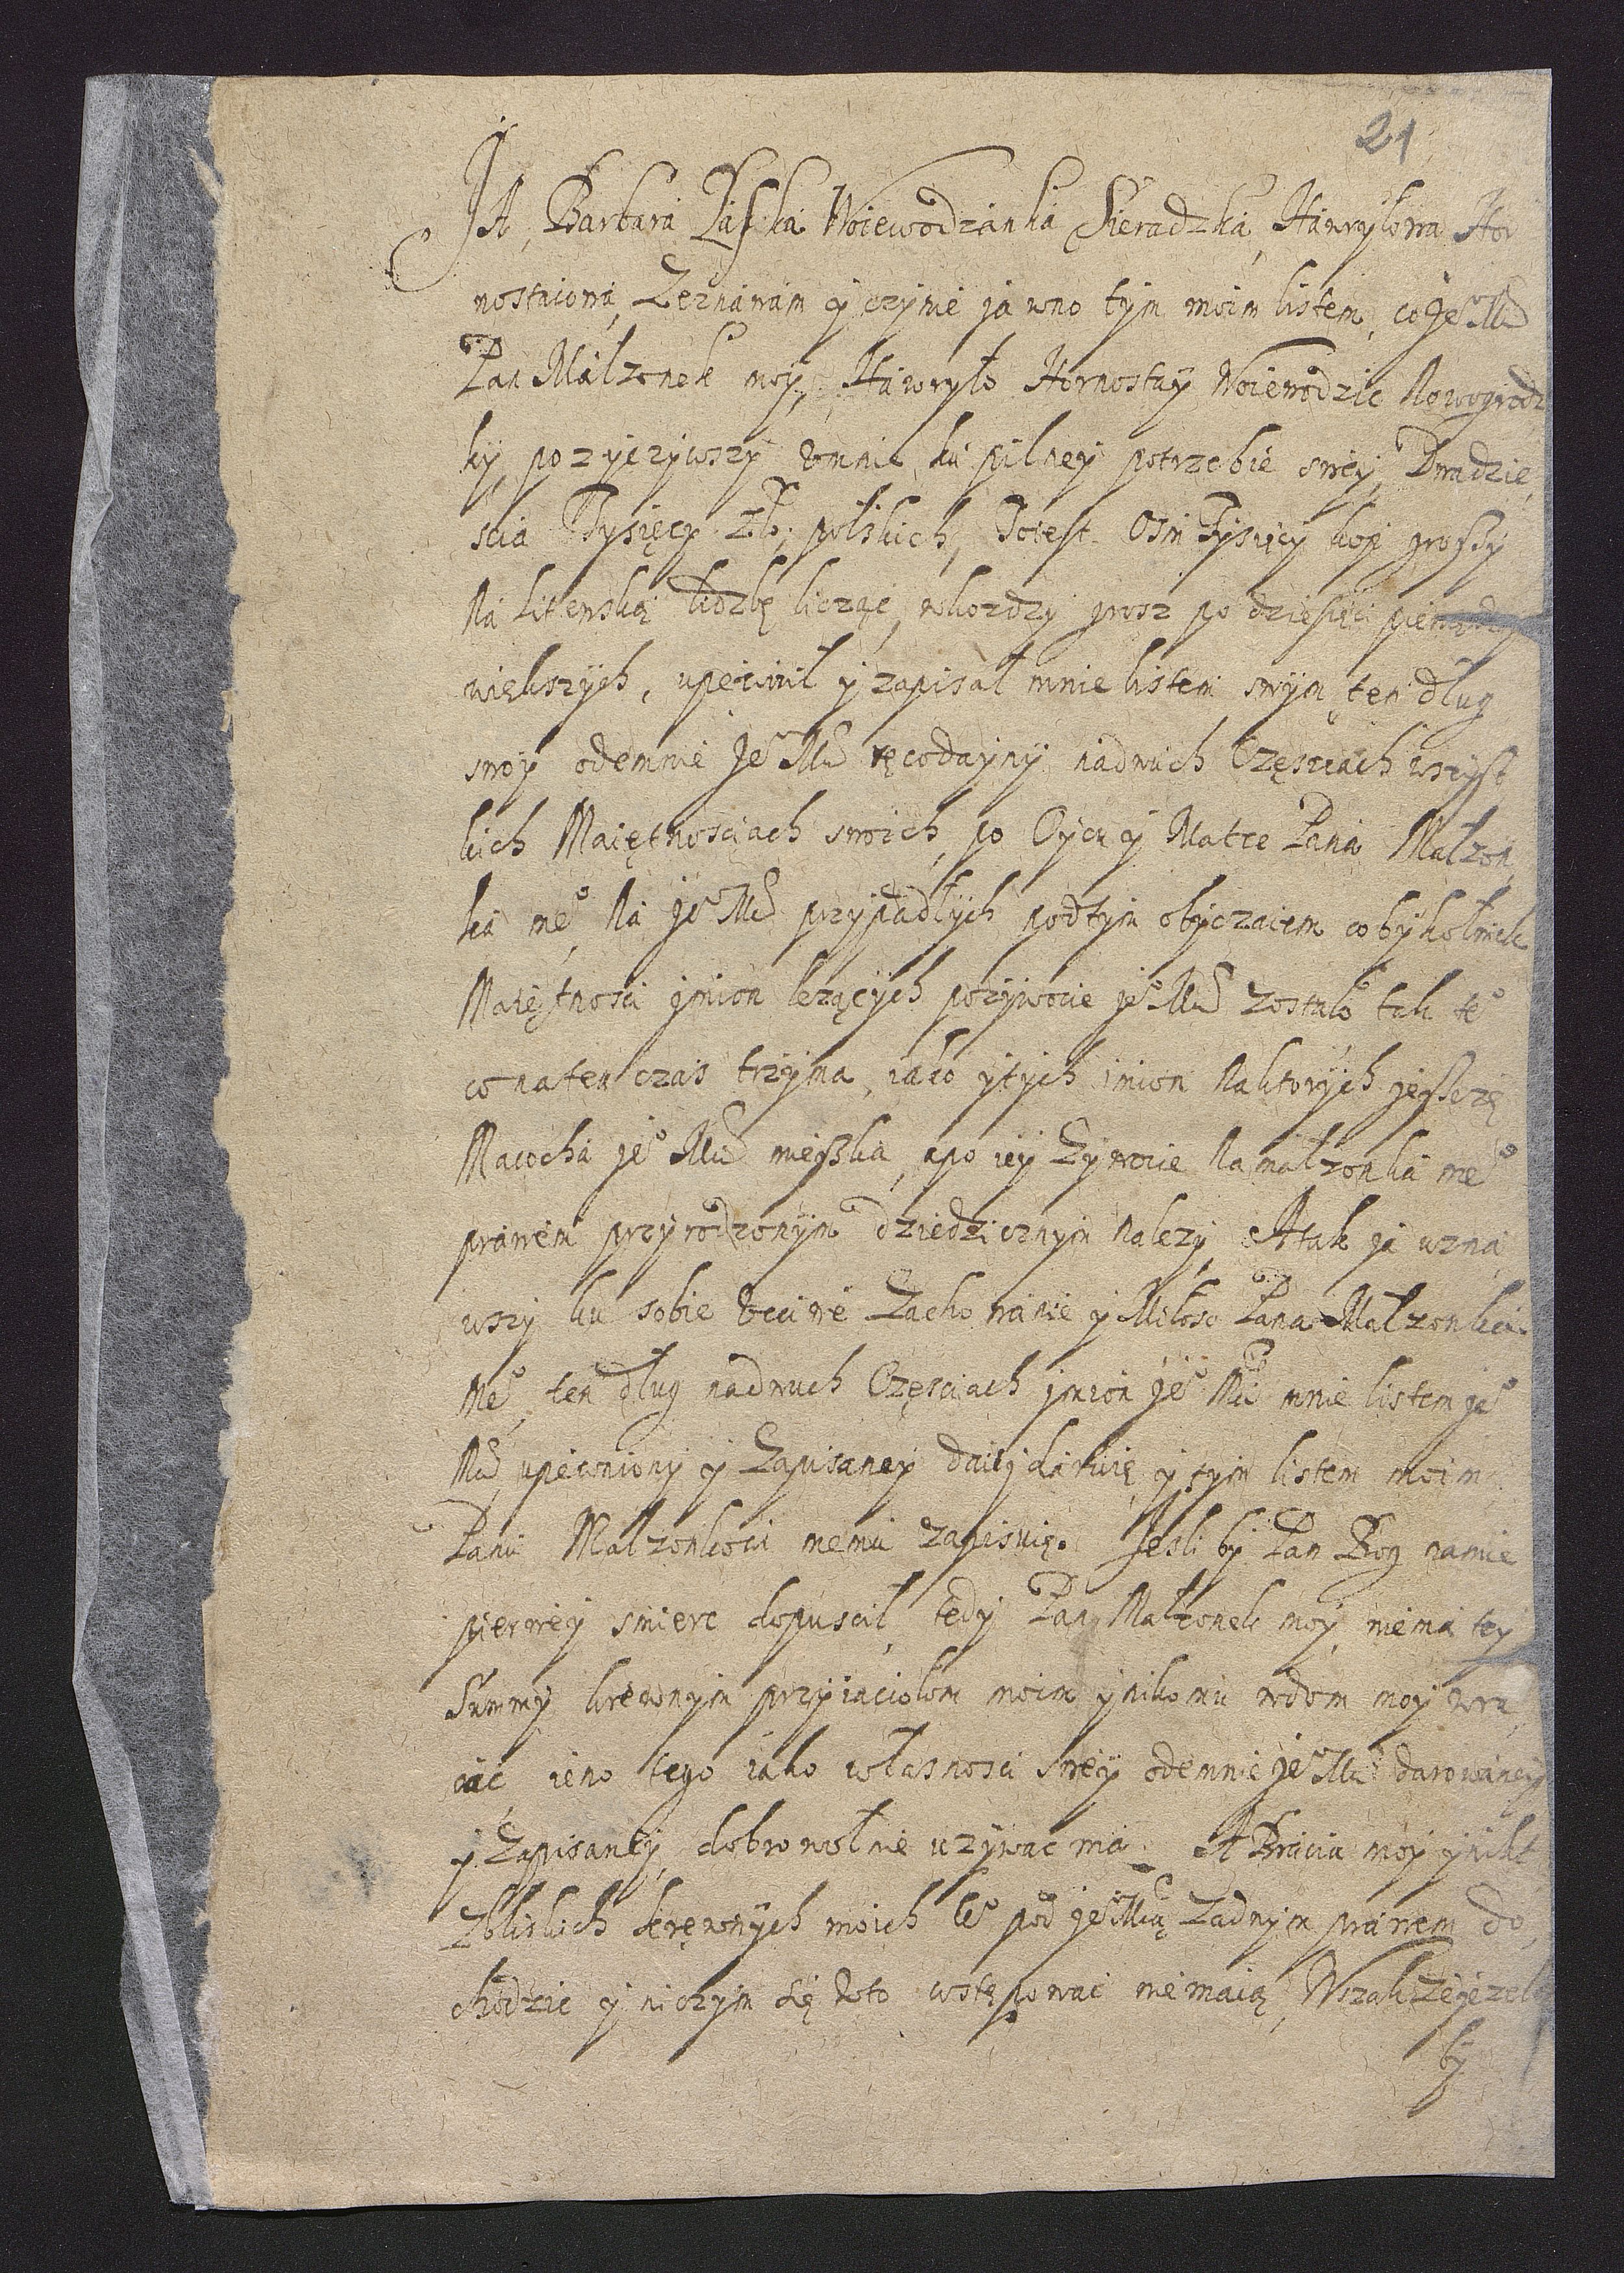 21
JA Barbara Łaska Woiewodzanka Sieradzka, Hawryłowa Hor
nostaiowa, Zeznawam y czynie jawno tym moim listem, co Je° Mć
Pan Małzonek moy, Hawryło Hornostay Woiewodzic Nowogrodz
ky, pozyczywszy umnie ku pilney potrzebie swey, Dwadzie,
scia Tysięcy zło: polskich, Toiest Osm Tysięcy kop groszy
Na Litewską liczbę licząc, wkozdzy grosz po dziesięci pieniędzy
większych, upewnił y zapisał mnie listem swym, ten dług
swoy odemnie Je° Mci nadwuch Częsciach wszyst
kich Maiętnosciach swoich, po Oycu y Matce Pana Małzon,
ka me°, Na Je° Mć przypadłych, podtym obyczaiem, cobykolwiek
Maiętnosci jmion lezących pozywocie je° Mci zostało tak te°
co naten czas trzyma, iako ytych imion Naktorych jeszcze
Macocha je° Mci mieszka, apo iey Zywocie Na małzonka me°
prawem przyrodzonym dziedzicznym Nalezy, Atak ja uzna
wszy ku sobie Ucciwe Zachowanie y Miłosc Pana Małzonka
Me°, ten dług nadwuch Częsciach jmion je° Mci mnie listem je°
Mci upewniony y Zapisaney daię y daruię, y tym listem moim
Panu Małzonkowi memu zapisuię. Jesli by Pan Bog namie
pierwey smierc dopuscił, tedy Pan Małzonek moy, niema tey
Summy krewnym przyiaciołom moim ynikomu wdom moy wra,
cac ieno tego iako własnosci swey odemnie je° Mci darowaney
y Zapisaney, dobrowolnie uzywac ma. A Bracia moy ynikt
Zbliskich krewnych moich te° pod je° Mcią Zadnym prawem do,
chodzic y niczym się Wto wstępowac niemaią, Wszakze jezel
by